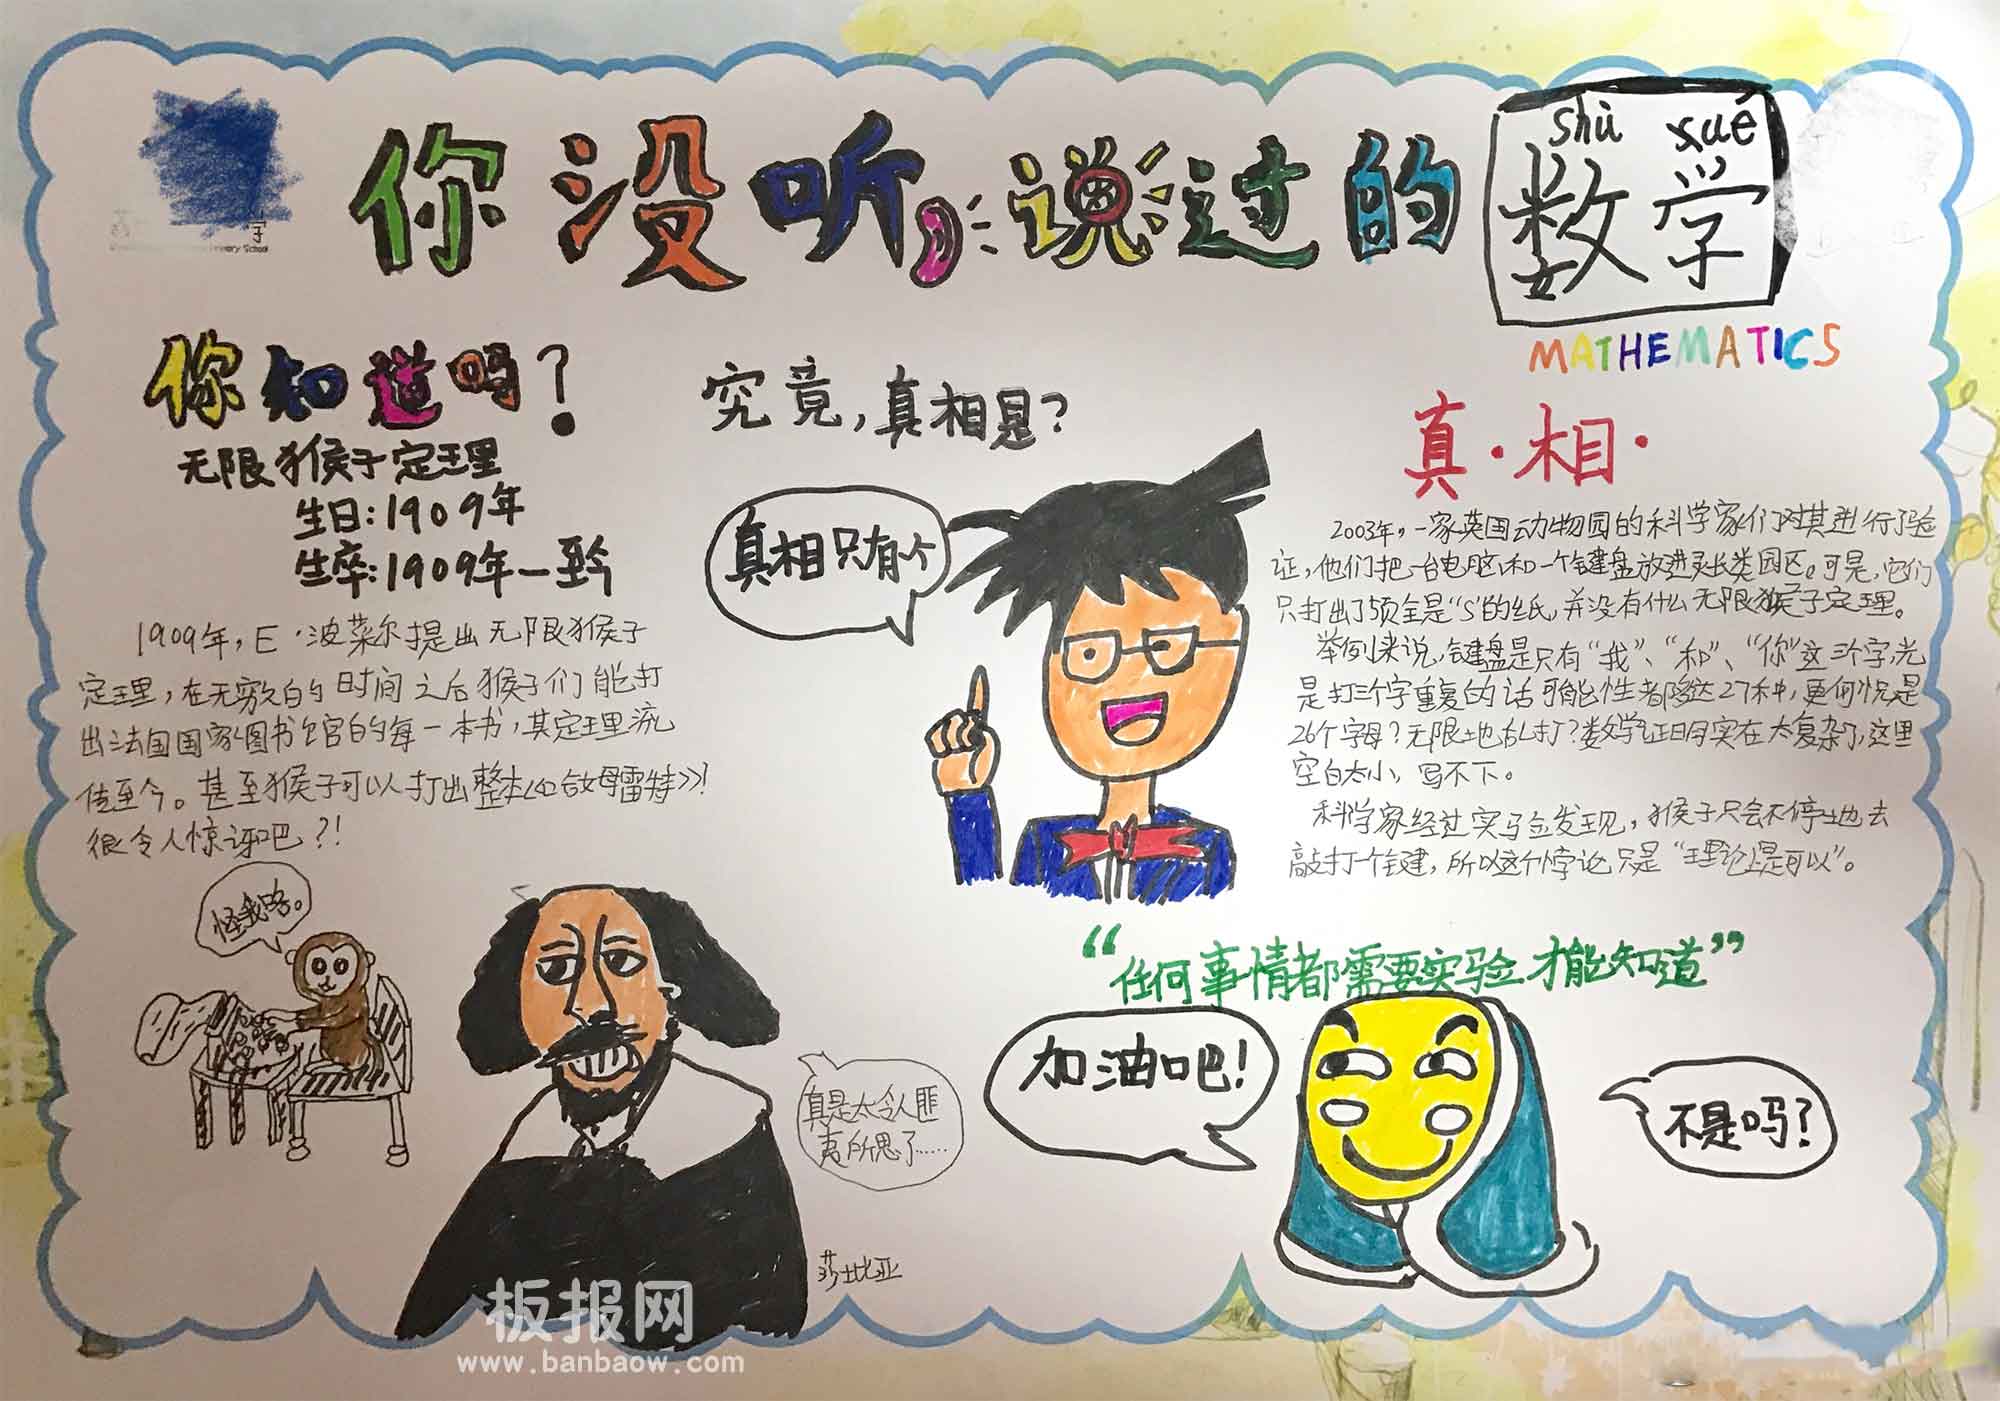 你没听说过的
shù xué
数学
MATHEMATICS
你知道吗?
无限猴子定理
生日:1909年
生卒:1909年—至今
1909年,E·波莱尔提出无限猴子
定理,在无穷的时间之后猴子们能打
出法国国家图书馆的每一本书,其定理流
传至今。甚至猴子可以打出整本《哈姆雷特》!
很令人惊讶吧?!
怪我咯。
真是太令人匪
夷所思了……
莎士比亚
究竟,真相是?
真相只有一个
真·相·
2003年,一家英国动物园的科学家们对其进行了验
证,他们把一台电脑和一个键盘放进灵长类园区。可是,它们
只打出了5页全是“S”的纸,并没有什么无限猴子定理。
举例来说,键盘是只有“我”、“和”、“你”这三个字,光
是打三个字重复的话可能性都隆达27种,更何况是
26个字母?无限地乱打?数学证明实在太复杂了,这里
空白太小,写不下。
科学家经过实验发现,猴子只会不停地去
敲打一个键,所以这个悖论只是“理论上是可以”。
“任何事情都需要实验才能知道”
加油吧!
不是吗?
Primary School
板报网
www.banbaow.com